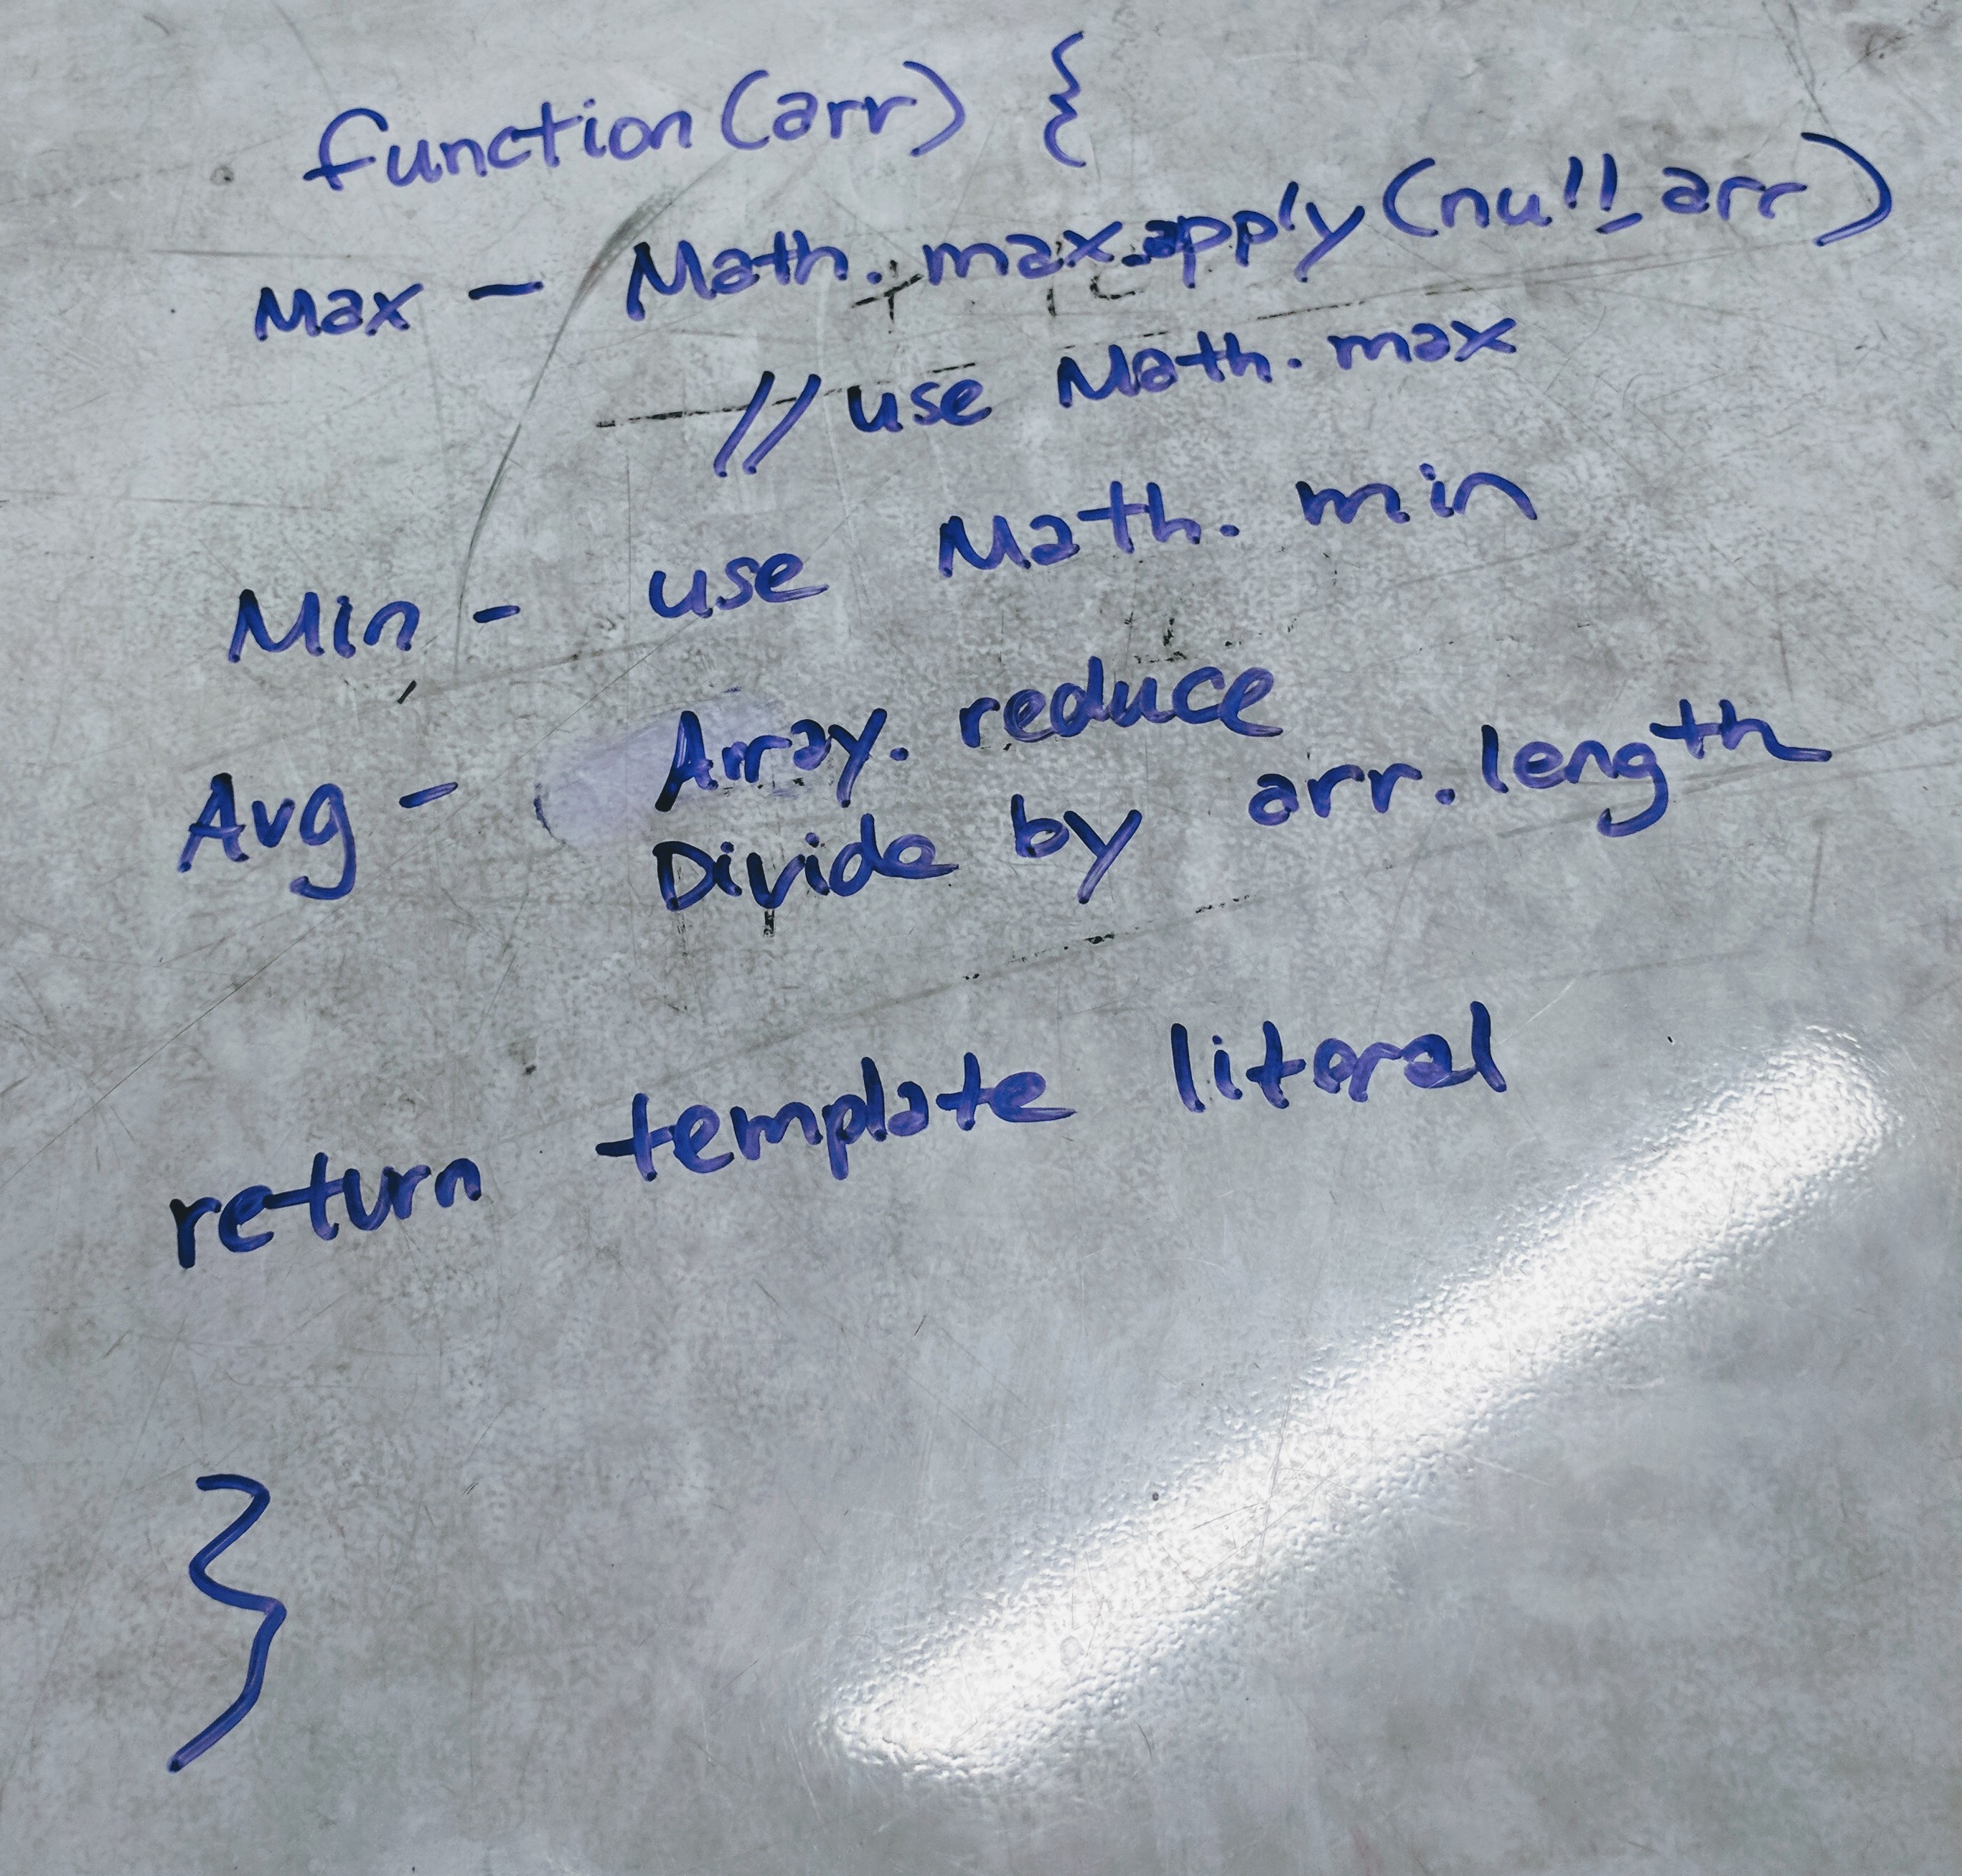 function(arr) {
Max - Math.max.apply(null, arr)
// use Math.max
Min - use Math.min
Avg - Array.reduce
Divide by arr.length
return template literal
}